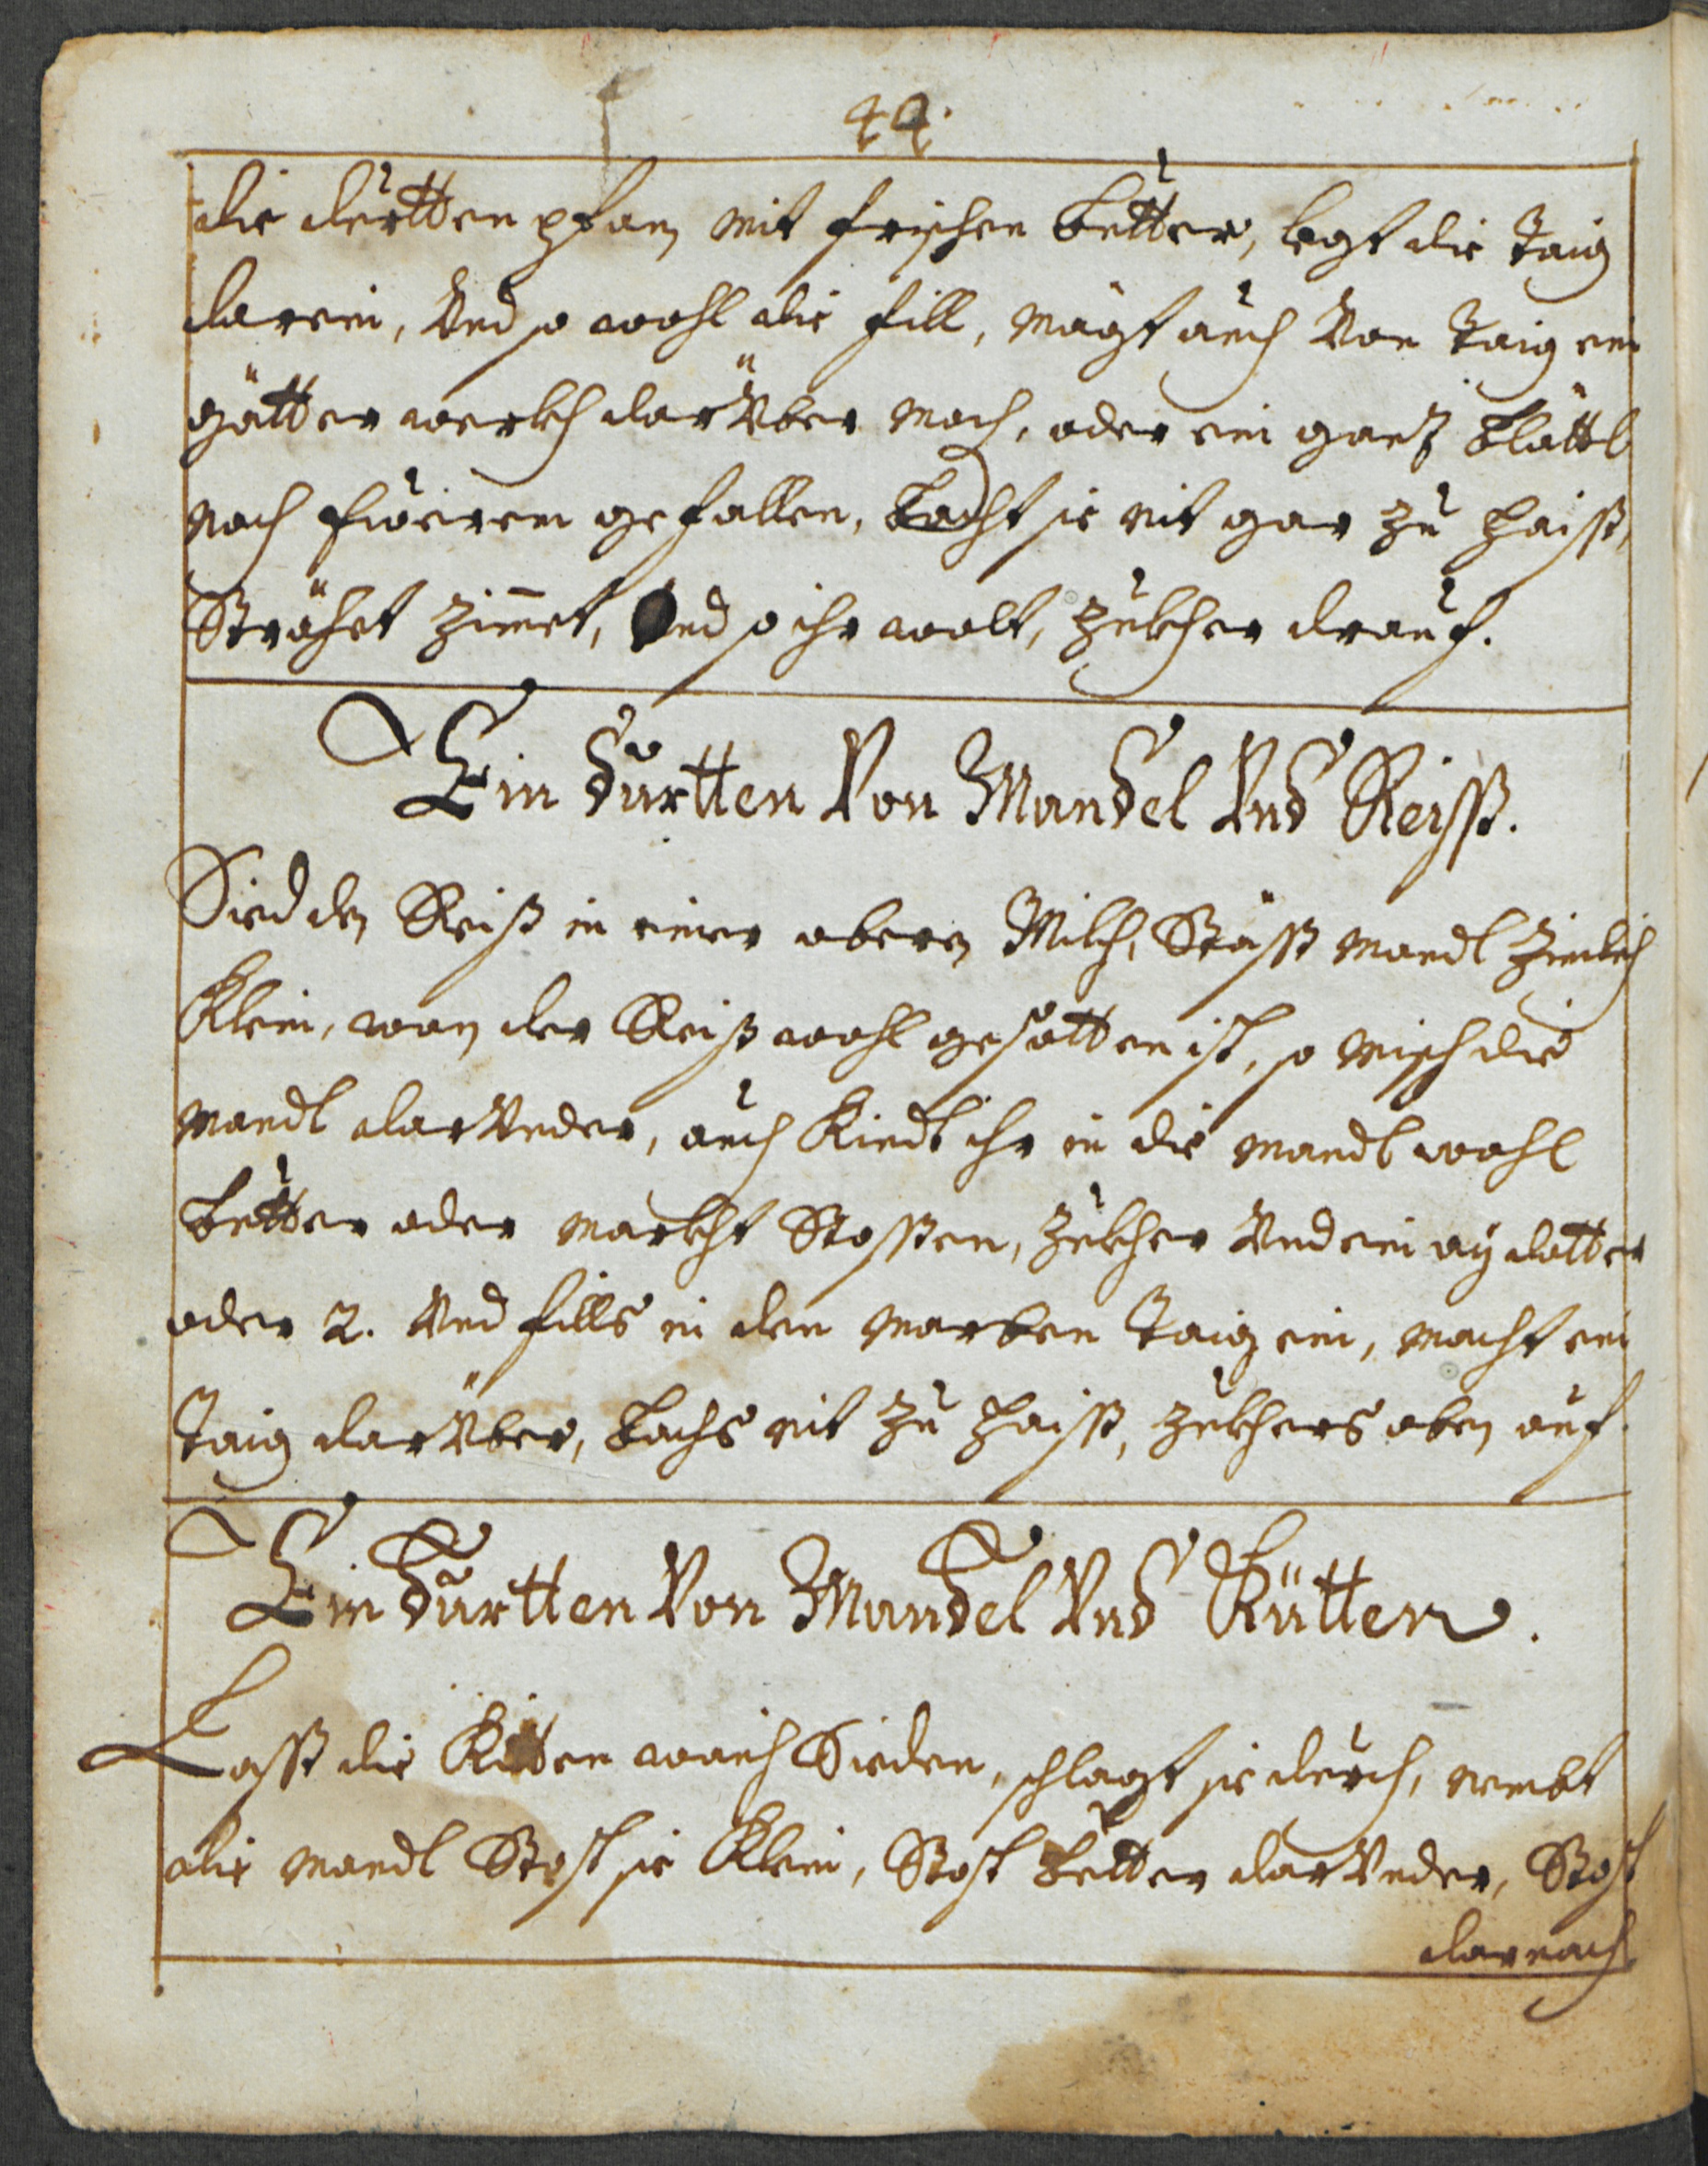 44.
die durtten pfan, mit frischen Butter, legt die Taig
darein, Vnd so wohl die fill, mögt auch Von Taig ein
gätter werkh darVber mach, oder ein ganz Blättl
nach Eurem gefallen, Bacht sie nit gar zu haiß,
Sträht Zimet, Vnd so ihr wolt, Zukher drauf.
Ein Durtten Von Mandel Vnd Reiß.
Sied den Reiß in einer obern Milch, Stoß Mandl Zimlich
Klein, wan der Reiß wohl gesotten ist, so misch die
Mandl darVnder, auch Kindt ihr in die Mandl wohl
Butter oder Markht Stossen, Zukher Vnd ein ay dotter
oder 2. Vnd fills in den Marben Taig ein, macht ein
Taig darVber, Bachs nit zu haiß, Zukhers oben auf.
Ein Durtten Von Mandel Vnd Kütten.
Laß die Kitten waich Sieden, schlagt sie durch, nembt
die Mandl Stost sie Klein, Stost Butter darVnder, Stost
darnach